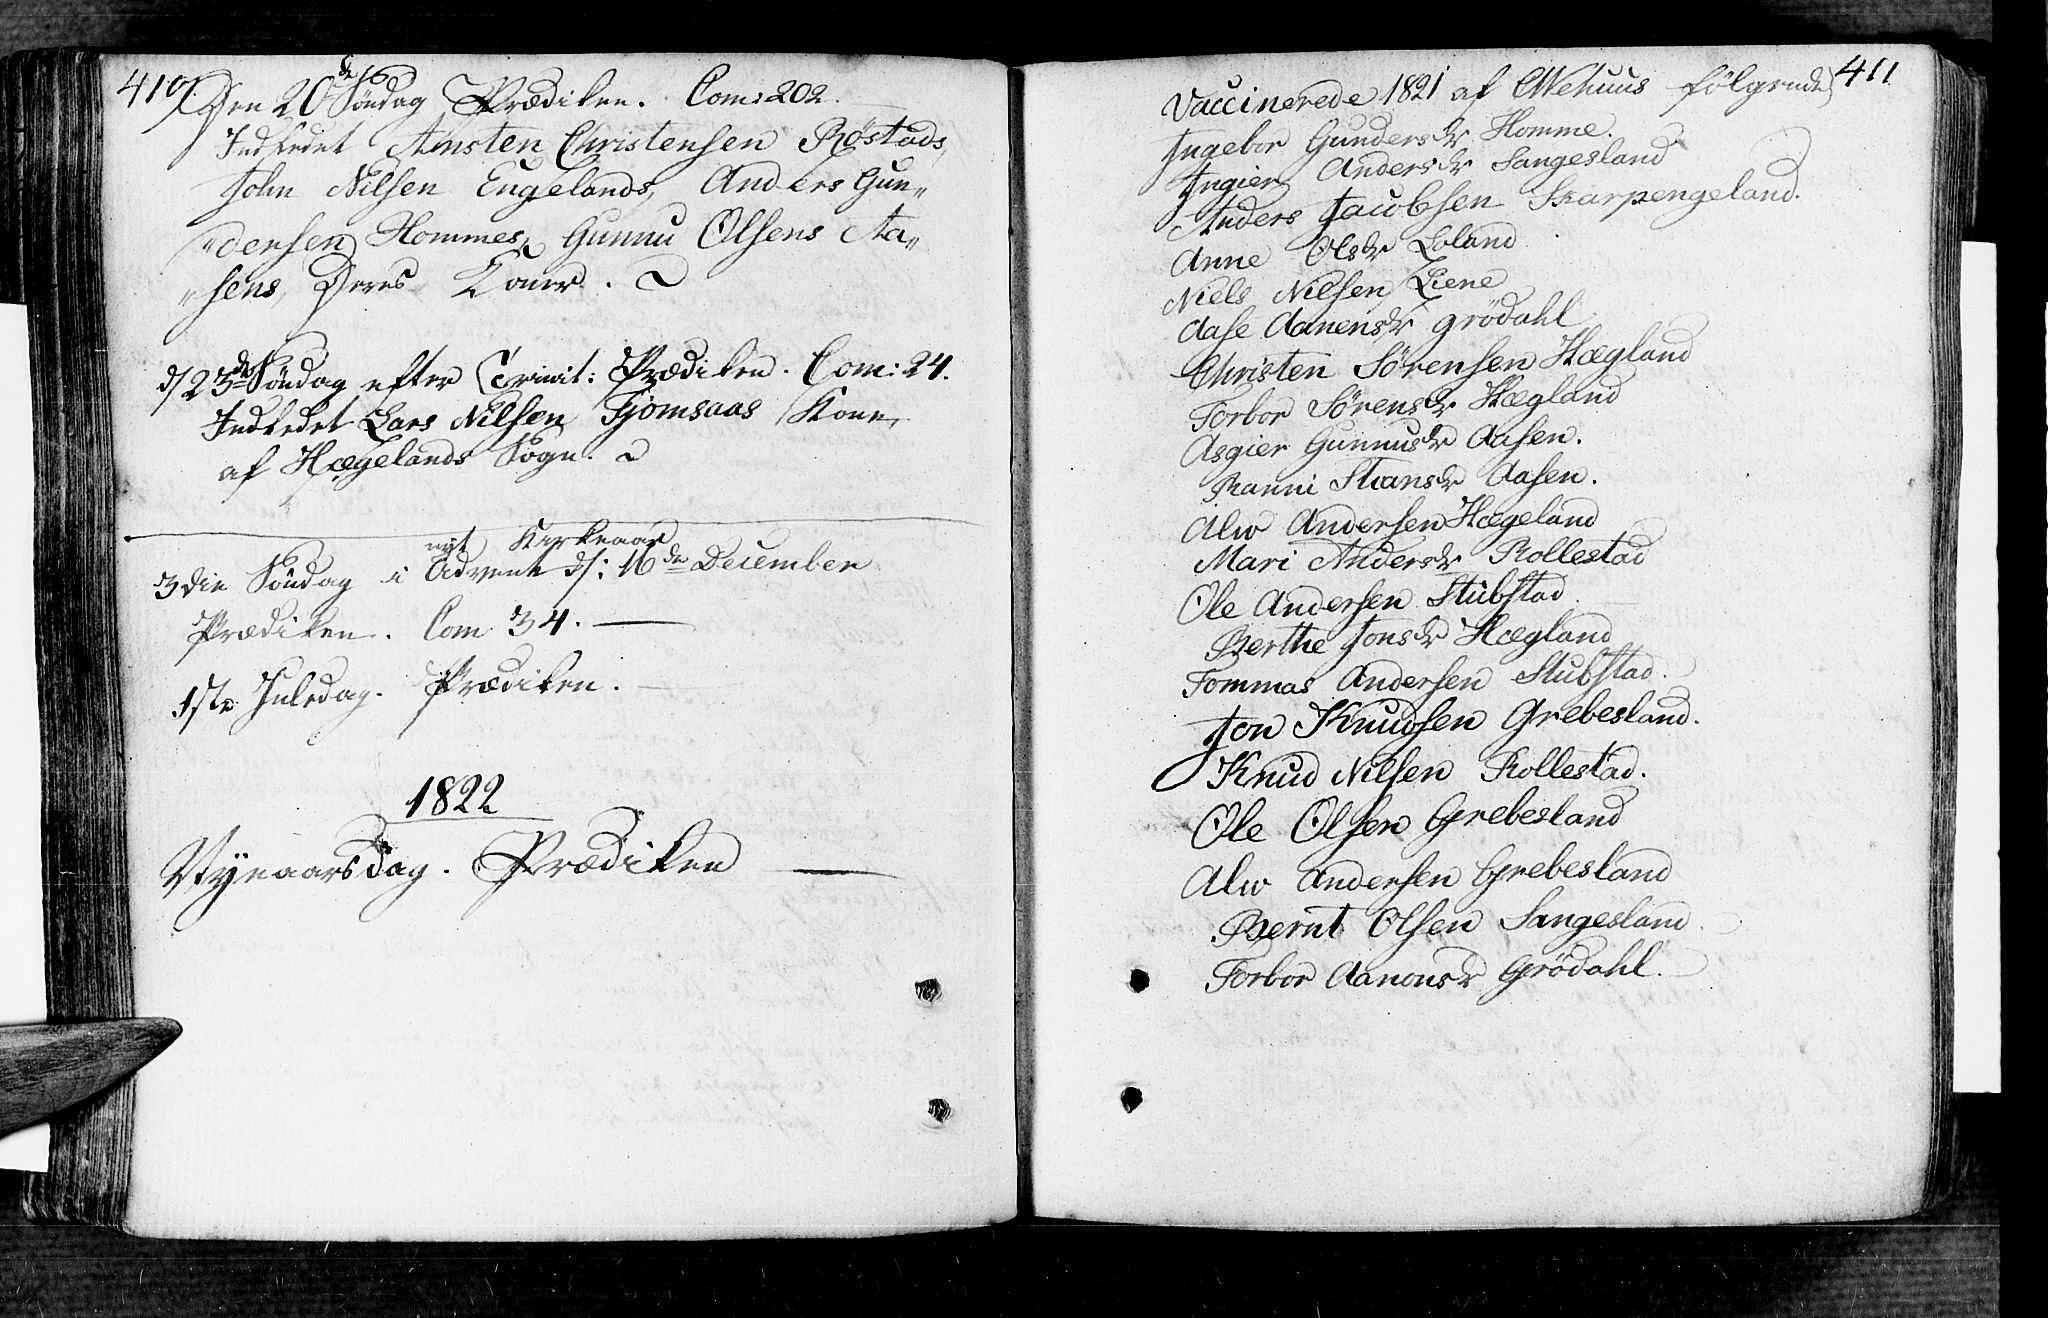 410.
Den 20de Søndag Prædiken. Com: 202.
Indledet Amsten Christensen Røstads,
John Nilsen Engelands, Anders Gun„
„dersen Hommes, Gunnu Olsens Aa„
„sens, Deres Koner.
d/ 23de Søndag efter Trinit: Prædiken. Com: 24.
Indledet Lars Nilsen Fjomsaas Kone,
af Hægelands Sogn.
nyt Kirkeaar
3die Søndag i Advent d/: 16de December
Prædiken. Com 34.
1ste Juledag. Prædiken.
1822
Nyeaarsdag. Prædiken
411
Vaccinerede 1821 af Wehuus følgende
Ingebor Gundersdr Homme.
Ingier Andersdr Sangesland
Anders Jacobsen Skarpengeland.
Anne Olsdr Loland
Niels Nilsen Liene
Aase Aanensdr Grödahl
Christen Sörensen Hægland
Torbor Sörensdr Hægland
Asgier Gunnusdr Aasen.
Ranni Steansdr Aasen.
Alw Andersen Hægeland
Mari Andersdr Rollestad
Ole Andersen Stubstad
Berthe Jonsdr Hægland
Tommas Andersen Stubstad.
Jon Knudsen Grebesland.
Knud Nilsen Rollestad.
Ole Olsen Grebesland
Alw Andersen Grebesland
Bernt Olsen Sangesland.
Torbor Aanonsdr Grödahl.